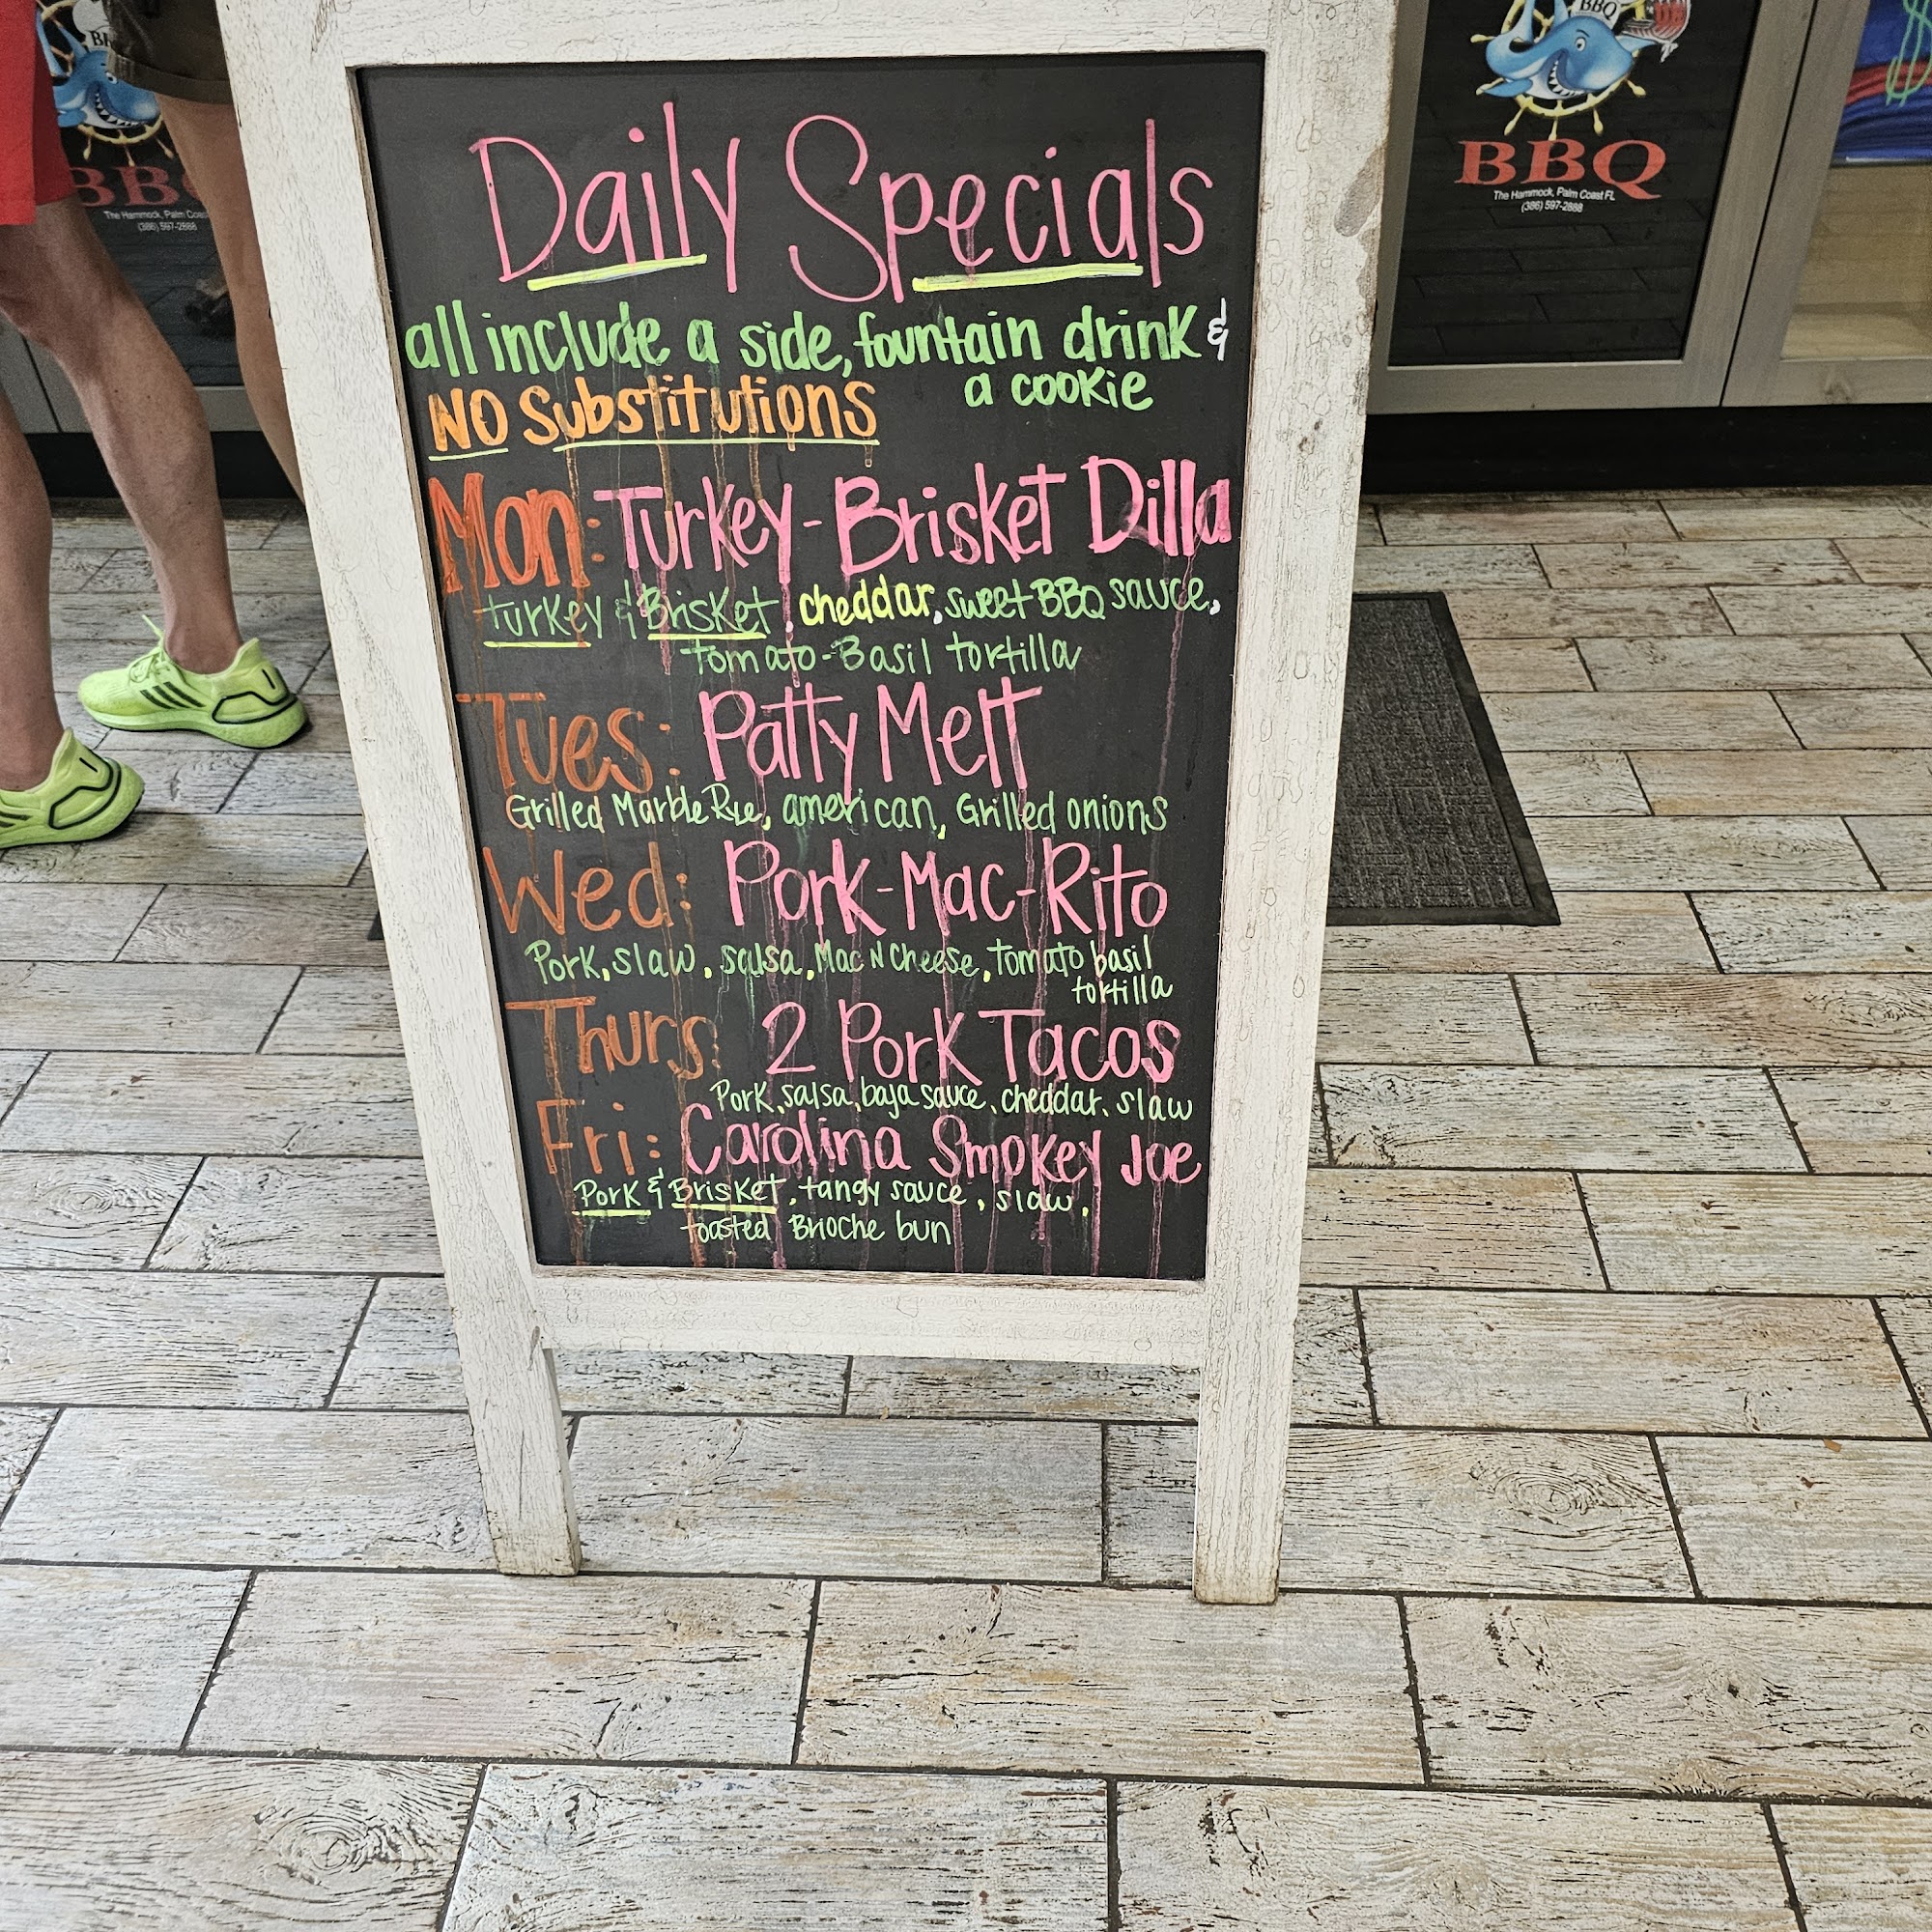 Daily Specials
all include a side, fountain drink &
a cookie
NO Substitutions
Mon: Turkey-Brisket Dilla
turkey & Brisket, cheddar, sweet BBQ sauce,
tomato-Basil tortilla
Tues: Patty Melt
Grilled Marble Rye, american, Grilled onions
Wed: Pork-Mac-Rito
Pork, slaw, salsa, Mac N Cheese, tomato basil
tortilla
Thurs: 2 Pork Tacos
Pork, salsa, baja sauce, cheddar, slaw
Fri: Carolina Smokey Joe
Pork & Brisket, tangy sauce, slaw,
toasted Brioche bun
BBQ
BBQ
The Hammock, Palm Coast FL
(386) 597-2888
BBQ
The Hammock, Palm Coast
(386) 597-2888